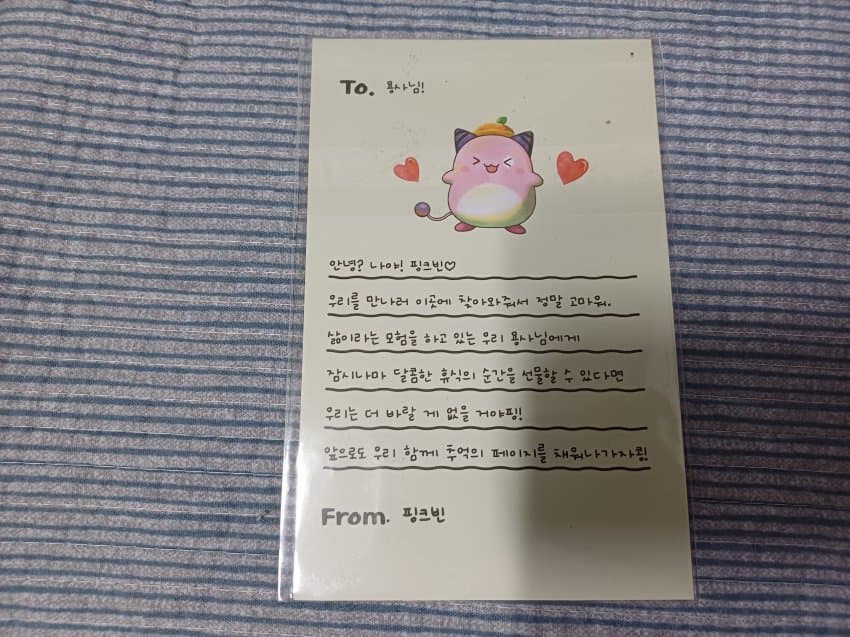 To. 용사님!
안녕? 나야! 핑크빈♡
우리를 만나러 이곳에 찾아와줘서 정말 고마워.
삶이라는 모험을 하고 있는 우리 용사님에게
잠시나마 달콤한 휴식의 순간을 선물할 수 있다면
우리는 더 바랄 게 없을 거야핑!
앞으로도 우리 함께 추억의 페이지를 채워나가자콩!
From. 핑크빈